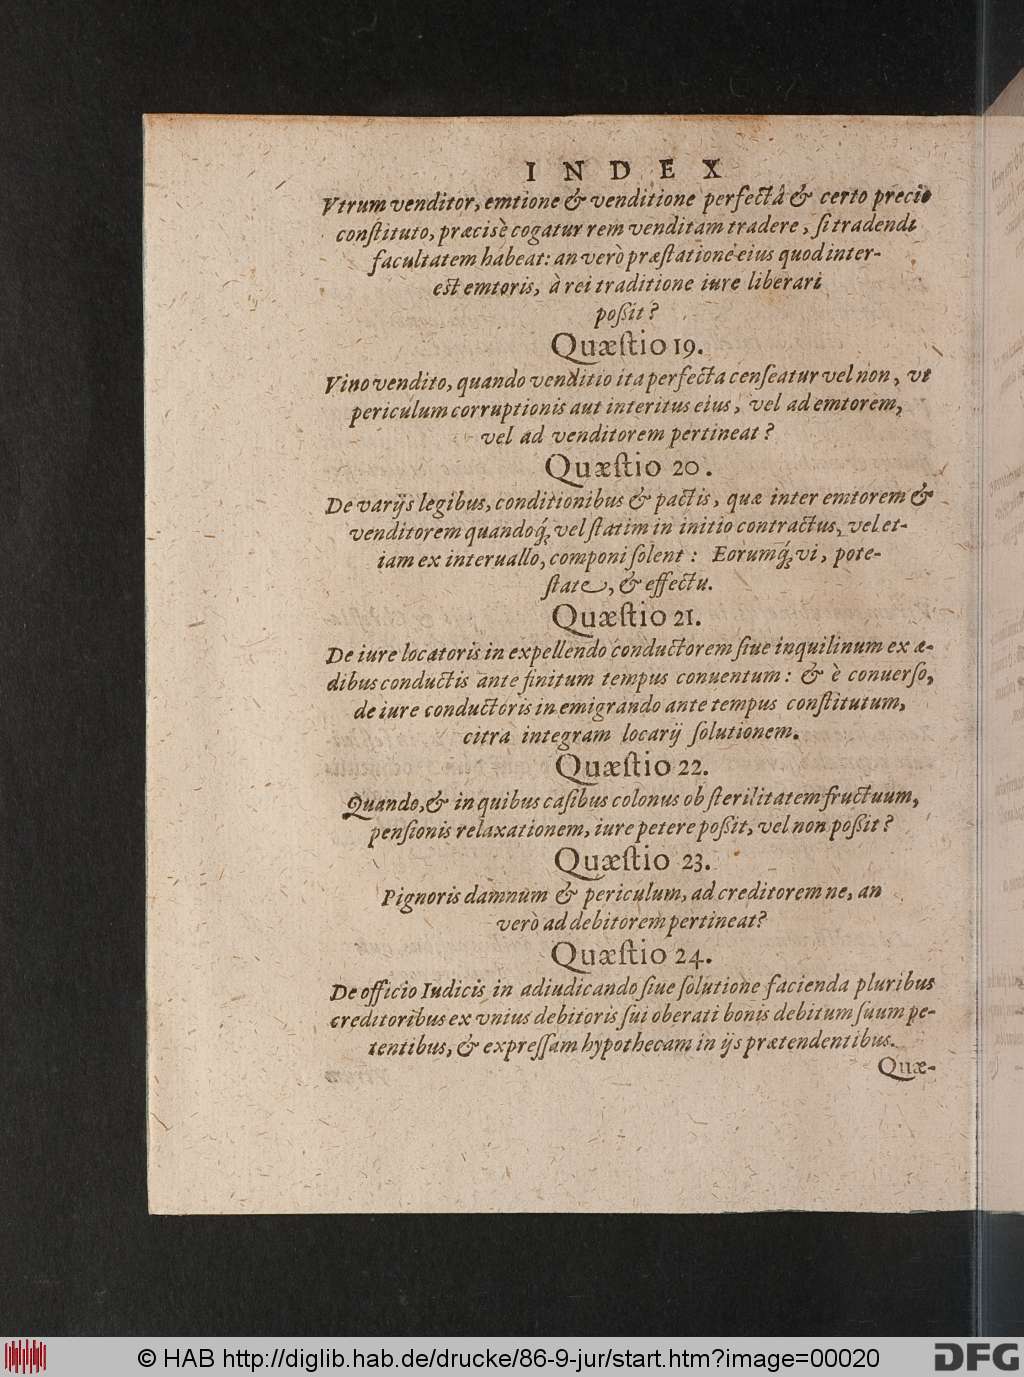 INDEX
Vtrum venditor, emtione & venditione perfectâ & certo precio
constituto, præcisè cogatur rem venditam tradere, si tradendi
facultatem habeat: an verò præstatione eius quod inter-
est emtoris, à rei traditione iure liberari
poßit?
Quæstio 19.
Vino vendito, quando venditio ita perfecta censeatur vel non, vt
periculum corruptionis aut interitus eius, vel ad emtorem,
vel ad venditorem pertineat?
Quæstio 20.
De varijs legibus, conditionibus & pactis, quæ inter emtorem &
venditorem quandoq́, vel statim in initio contractus, vel et-
iam ex interuallo, componi solent: Eorumq́; vi, pote-
state, & effectu.
Quæstio 21.
De iure locatoris in expellendo conductorem siue inquilinum ex æ-
dibus conductis ante finitum tempus conuentum: & è conuerso,
de iure conductoris in emigrando ante tempus constitutum,
citra integram locarij solutionem.
Quæstio 22.
Quando, & in quibus casibus colonus ob sterilitatem fructuum,
pensionis relaxationem, iure petere poßit, vel non poßit?
Quæstio 23.
Pignoris damnum & periculum, ad creditorem ne, an
verò ad debitorem pertineat?
Quæstio 24.
De officio Iudicis in adiudicando siue solutione facienda pluribus
creditoribus ex vnius debitoris sui oberati bonis debitum suum pe-
tentibus, & expressam hypothecam in ijs prætendentibus.
Quæ-
© HAB http://diglib.hab.de/drucke/86-9-jur/start.htm?image=00020
DFG